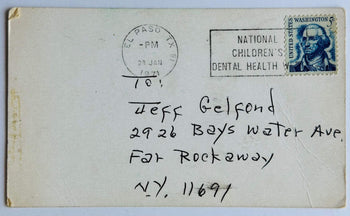 EL PASO TX
PM
28 JAN
1971
NATIONAL
CHILDREN'S
DENTAL HEALTH W
UNITED STATES
WASHINGTON 5¢
To:
Jeff Gelfond
2926 Bays Water Ave.
Far Rockaway
N.Y. 11691